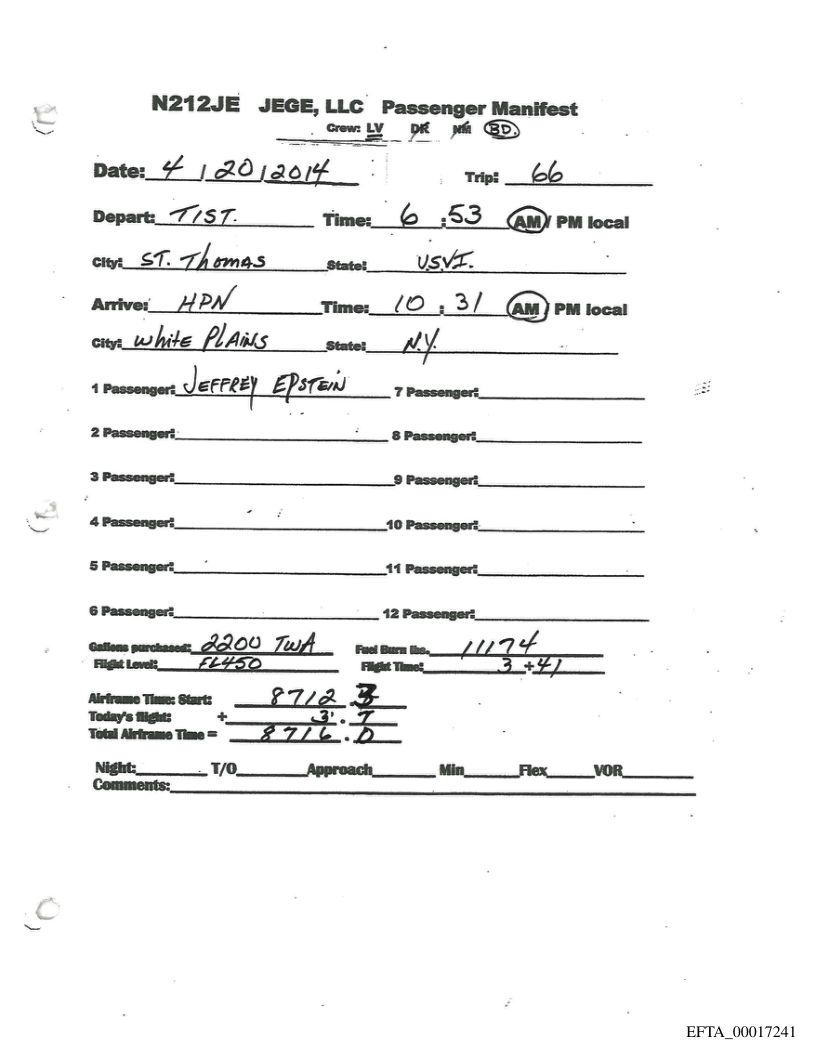 N212JE JEGE, LLC Passenger Manifest
Crew: LV DK NM BD.
Date: 4 / 20 / 2014 Trip: 66
Depart: TIST. Time: 6 : 53 AM / PM local
City: ST. Thomas State: U.S.V.I.
Arrive: HPN Time: 10 : 31 AM / PM local
City: White Plains State: N.Y.
1 Passenger: JEFFREY EPSTEIN 7 Passenger:
2 Passenger: 8 Passenger:
3 Passenger: 9 Passenger:
4 Passenger: 10 Passenger:
5 Passenger: 11 Passenger:
6 Passenger: 12 Passenger:
Gallons purchased: 2200 TWA Fuel Burn lbs. 11174
Flight Level: FL450 Flight Time: 3 + 41
Airframe Time: Start: 8712 .3
Today's flight: + 3 . 7
Total Airframe Time = 8716 . 0
Night: T/O Approach Min Flex VOR
Comments:
EFTA_00017241